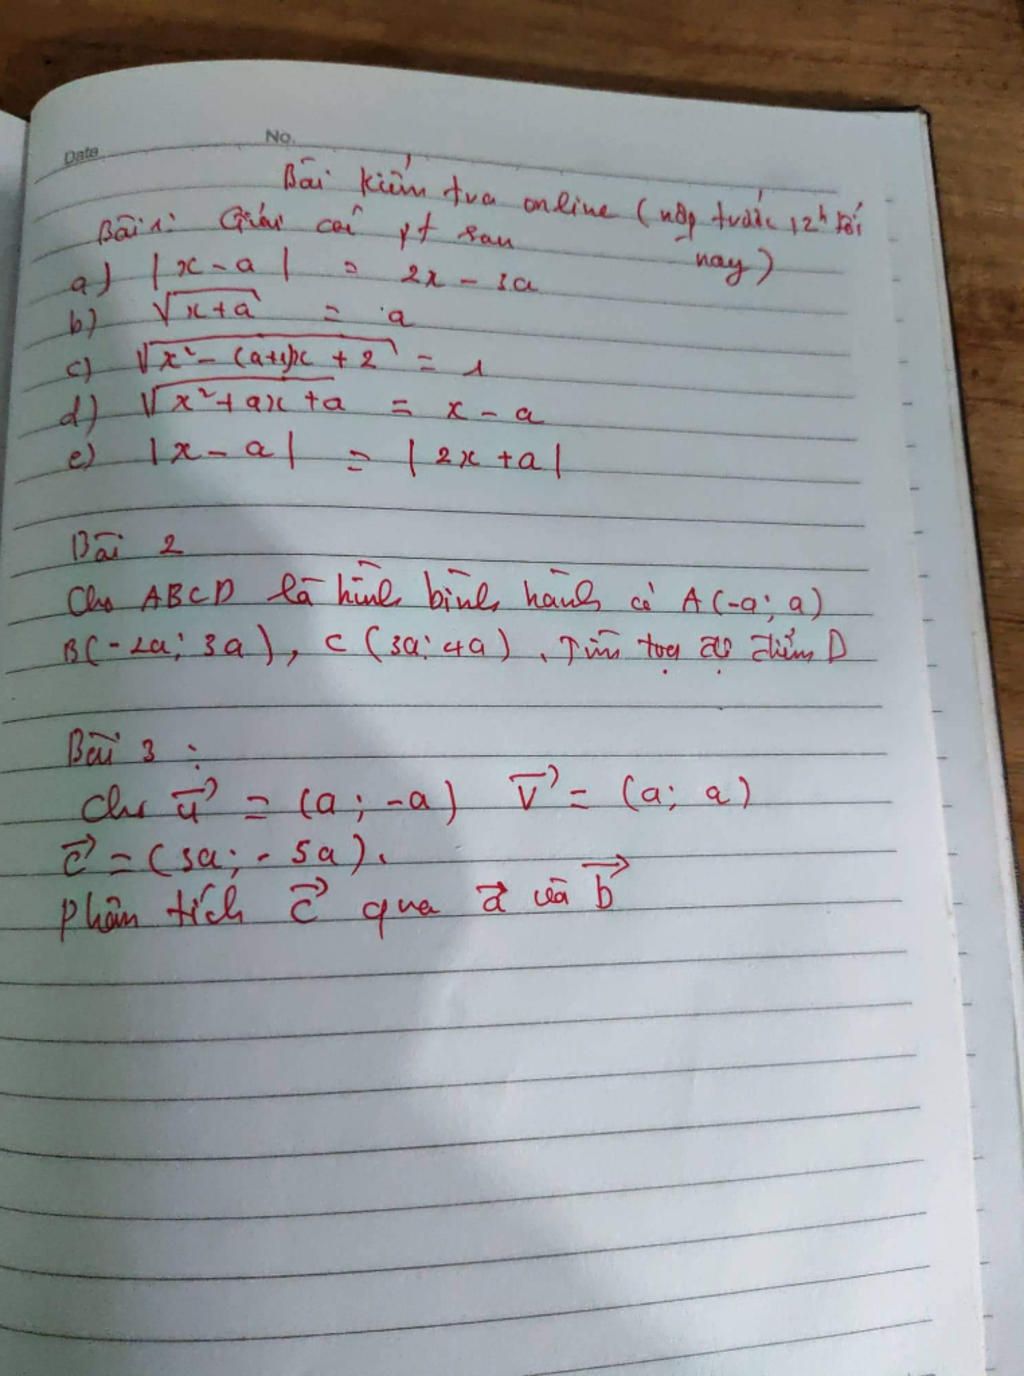 Date No.
Bài kiểm tra online (nộp trước 12h tối
nay)
Bài 1: Giải các pt sau
a) |x-a| = 2x-3a
b) √(x+a) = a
c) √(x²-(a+1)x+2) = 1
d) √(x²+ax+a) = x-a
e) |x-a| = |2x+a|
Bài 2
Cho ABCD là hình bình hành có A(-a; a)
B(-2a; 3a), C(3a; 4a). Tìm tọa độ điểm D
Bài 3:
Cho u⃗ = (a; -a) v⃗ = (a; a)
c⃗ = (3a; -5a).
Phân tích c⃗ qua a⃗ và b⃗